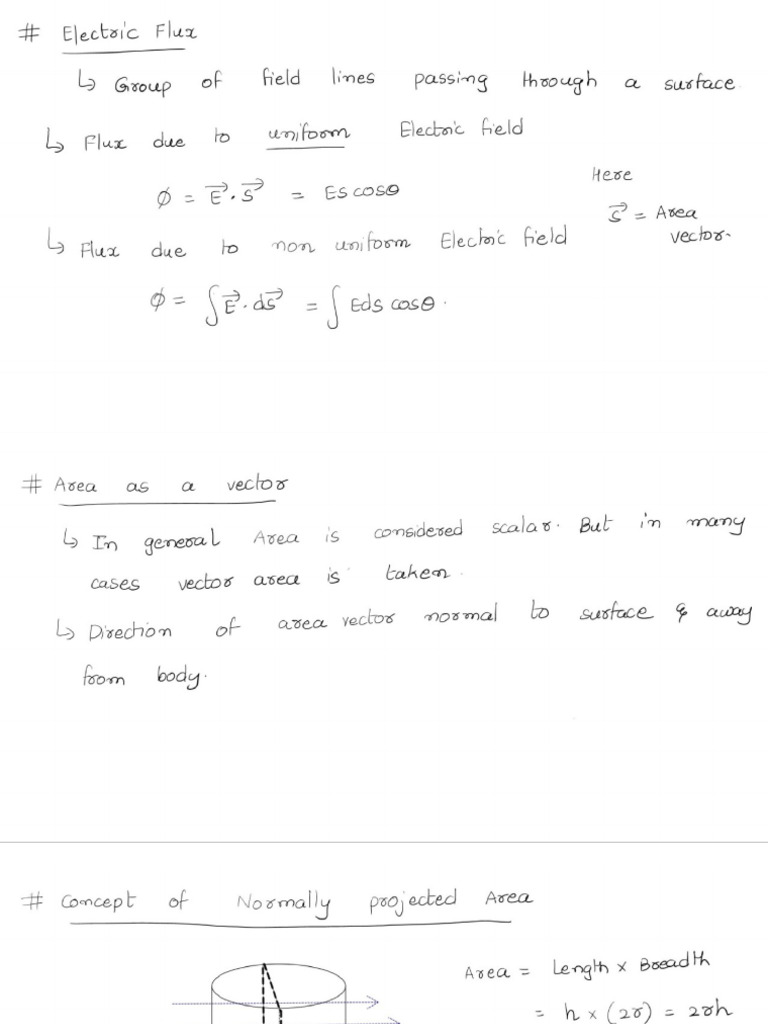 # Electric Flux
↳ Group of field lines passing through a surface.
↳ Flux due to uniform Electric field
ϕ = E⃗ · S⃗ = Es cosθ
Here
S⃗ = Area
vector.
↳ Flux due to non uniform Electric field
ϕ = ∫E⃗ · ds⃗ = ∫ Eds cosθ.
# Area as a vector
↳ In general Area is considered scalar. But in many
cases vector area is taken.
↳ Direction of area vector normal to surface & away
from body.
# Concept of Normally projected Area
Area = Length × Breadth
= h × (2r) = 2rh